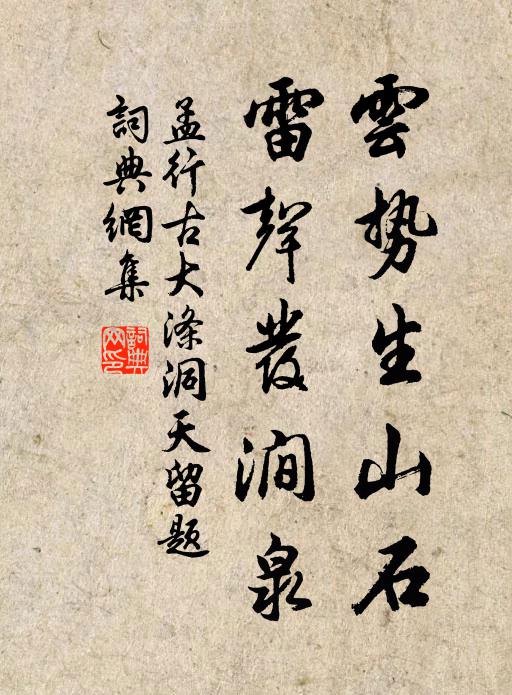 雲勢生山石
雷聲發澗泉
孟行古大滌洞天留題
詞典網集
詞典網印